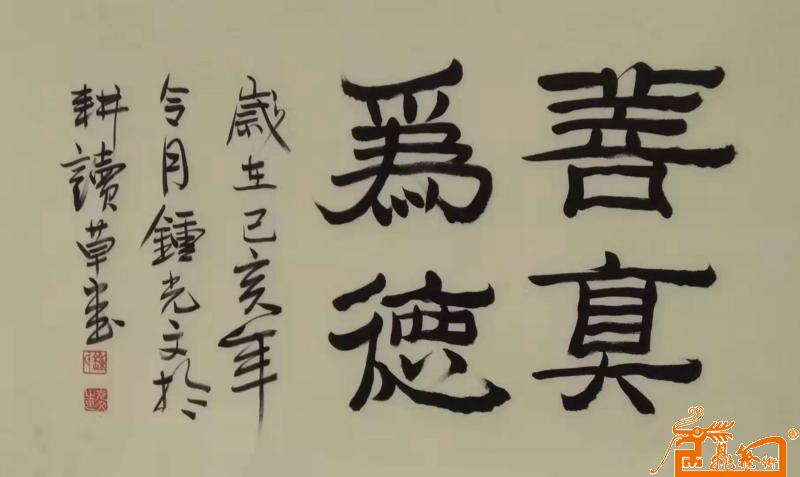 善真
爲徳
歲在己亥年
令月鍾光文於
耕讀草堂